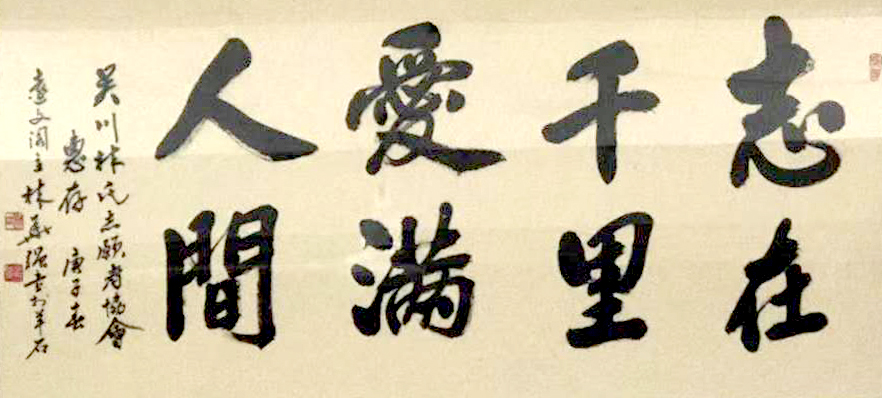 志在
千里
愛滿
人間
吳川林氏志願者協會
惠存 庚子春
文閣主林華強書於羊石